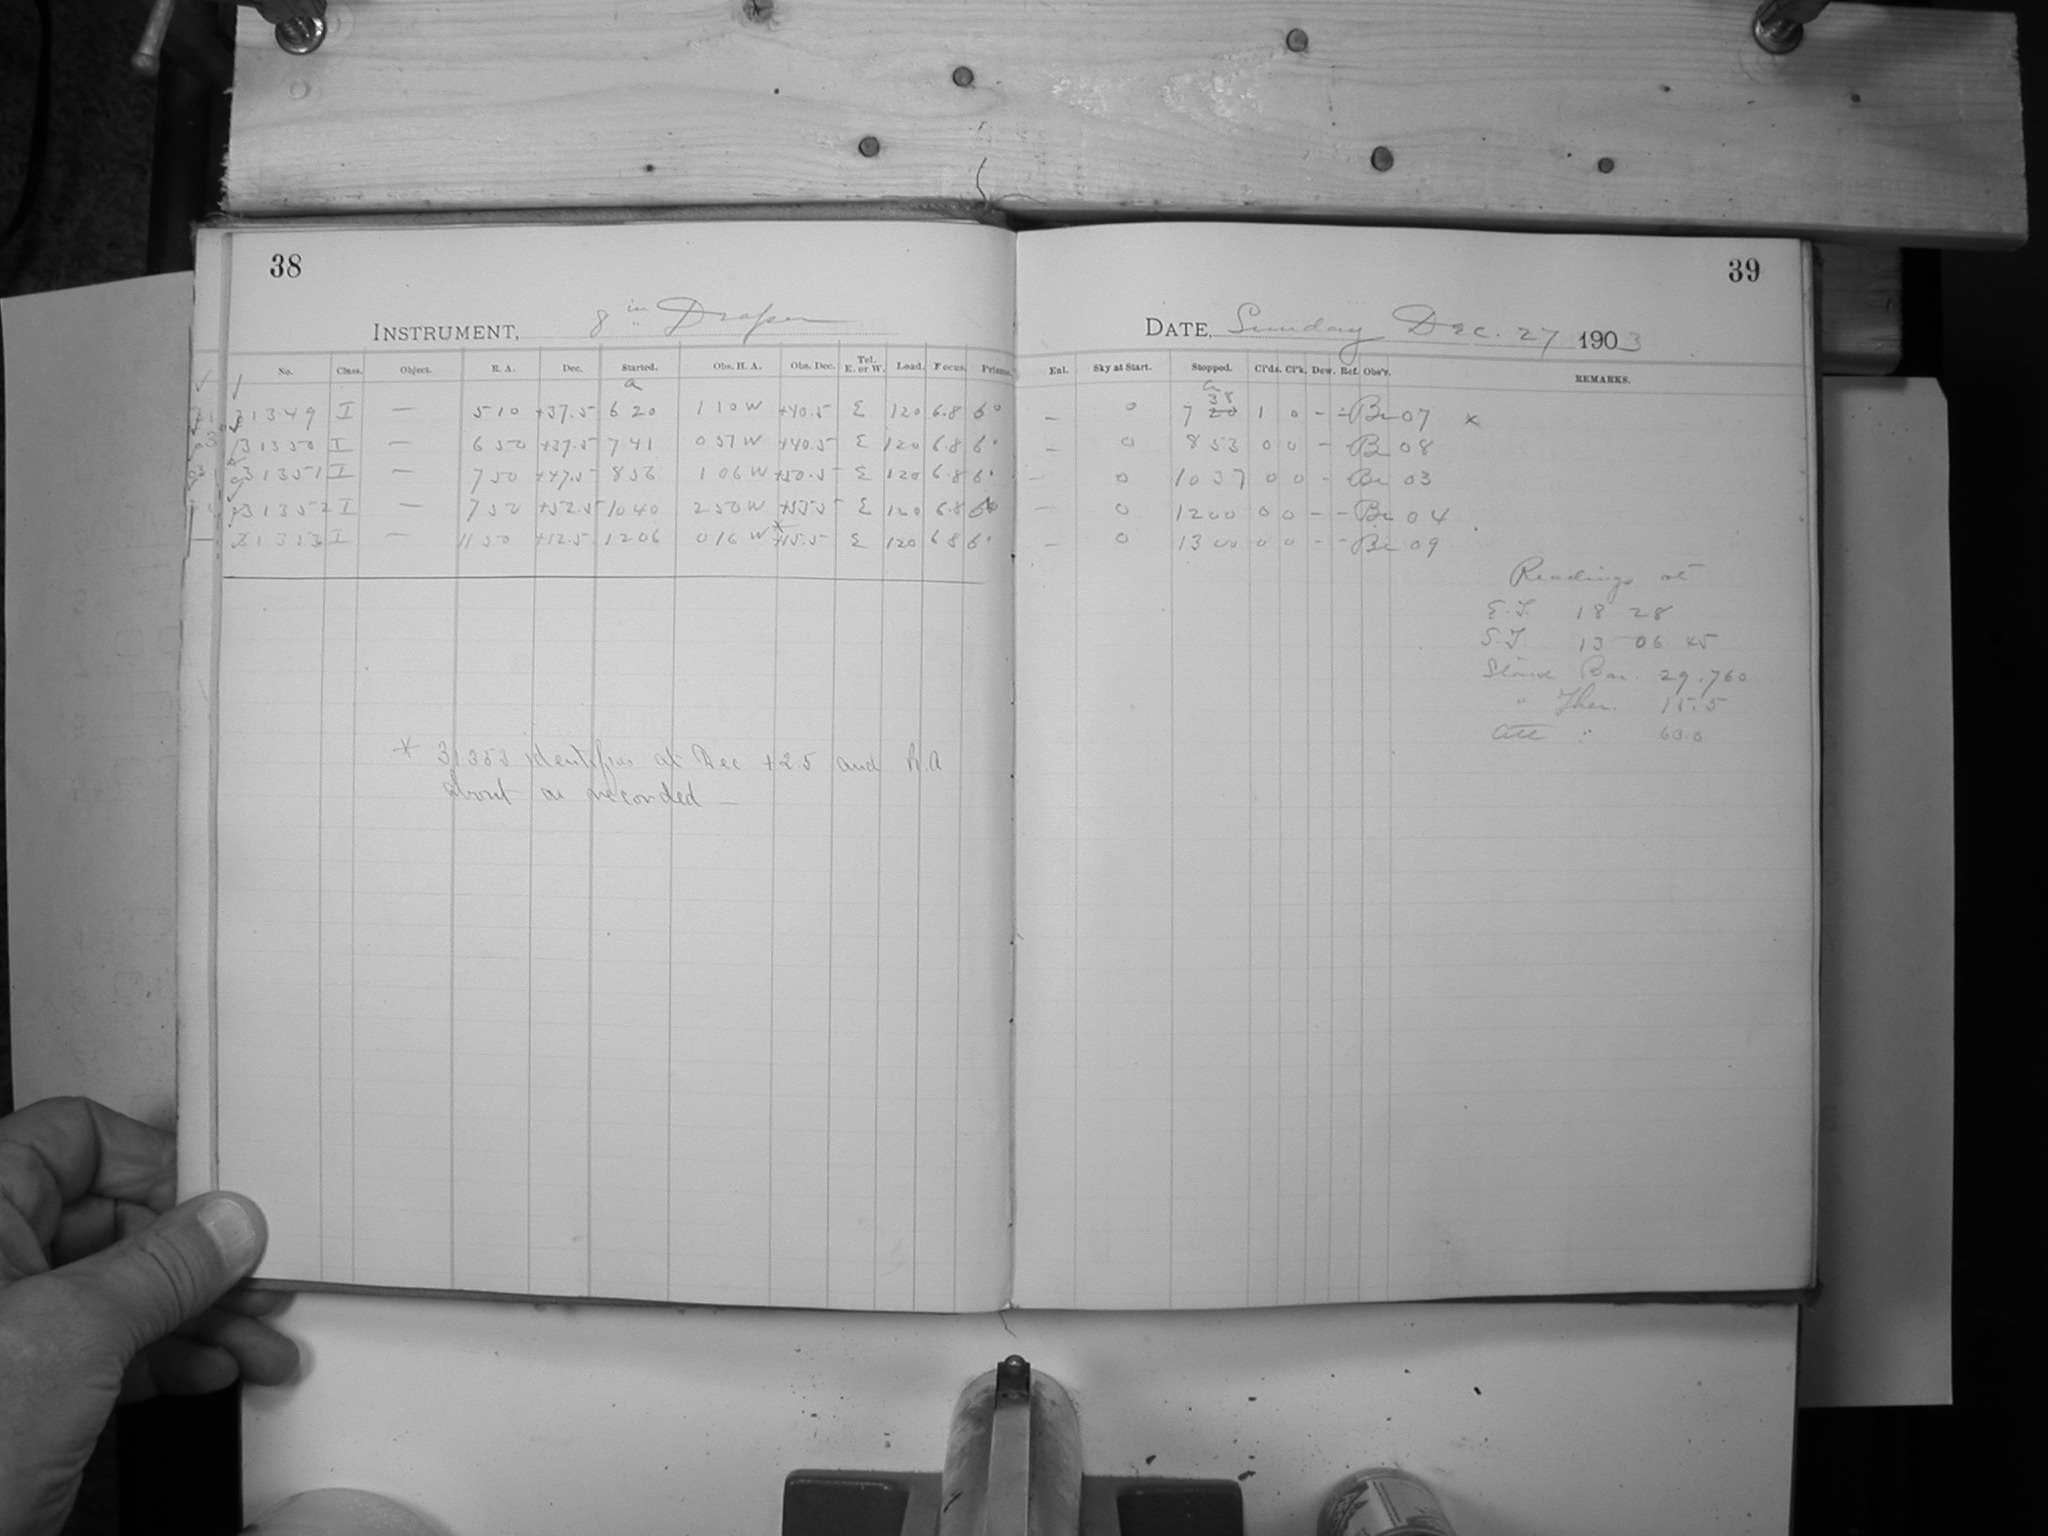 38
INSTRUMENT, 8 in Draper
No. Class. Object. R. A. Dec. Started. Obs. H. A. Obs. Dec. Tel. E. or W. Load. Focus. Prisms.
a
31349 I — 5 10 +37.5 6 20 1 10 W +40.5 E 120 6.8 6°
31350 I — 6 50 +37.5 7 41 0 57 W +40.5 E 120 6.8 6°
31351 I — 7 50 +47.5 8 56 1 06 W +50.5 E 120 6.8 6°
31352 I — 7 50 +52.5 10 40 2 50 W +55.5 E 120 6.8
31353 I — 11 50 +12.5 12 06 0 16 W *+15.5 E 120 6.8 6°
* 31353 identifies at Dec +2.5 and R.A
about as recorded —
39
DATE, Sunday Dec. 27 1903
Enl. Sky at Start. Stopped. Cl'ds. Cl'k. Dew. Ref. Obs'r. REMARKS.
a
38
— 0 7 20 1 0 - - Br 07 x
— 0 8 53 0 0 - - Br 08
— 0 10 37 0 0 - - Br 03
— 0 12 00 0 0 - - Br 04
— 0 13 00 0 0 - - Br 09
Readings at
E.T. 18 28
S.T. 13 06 45
Stand Bar. 29.760
" Ther. 15.5
Att : 60.0